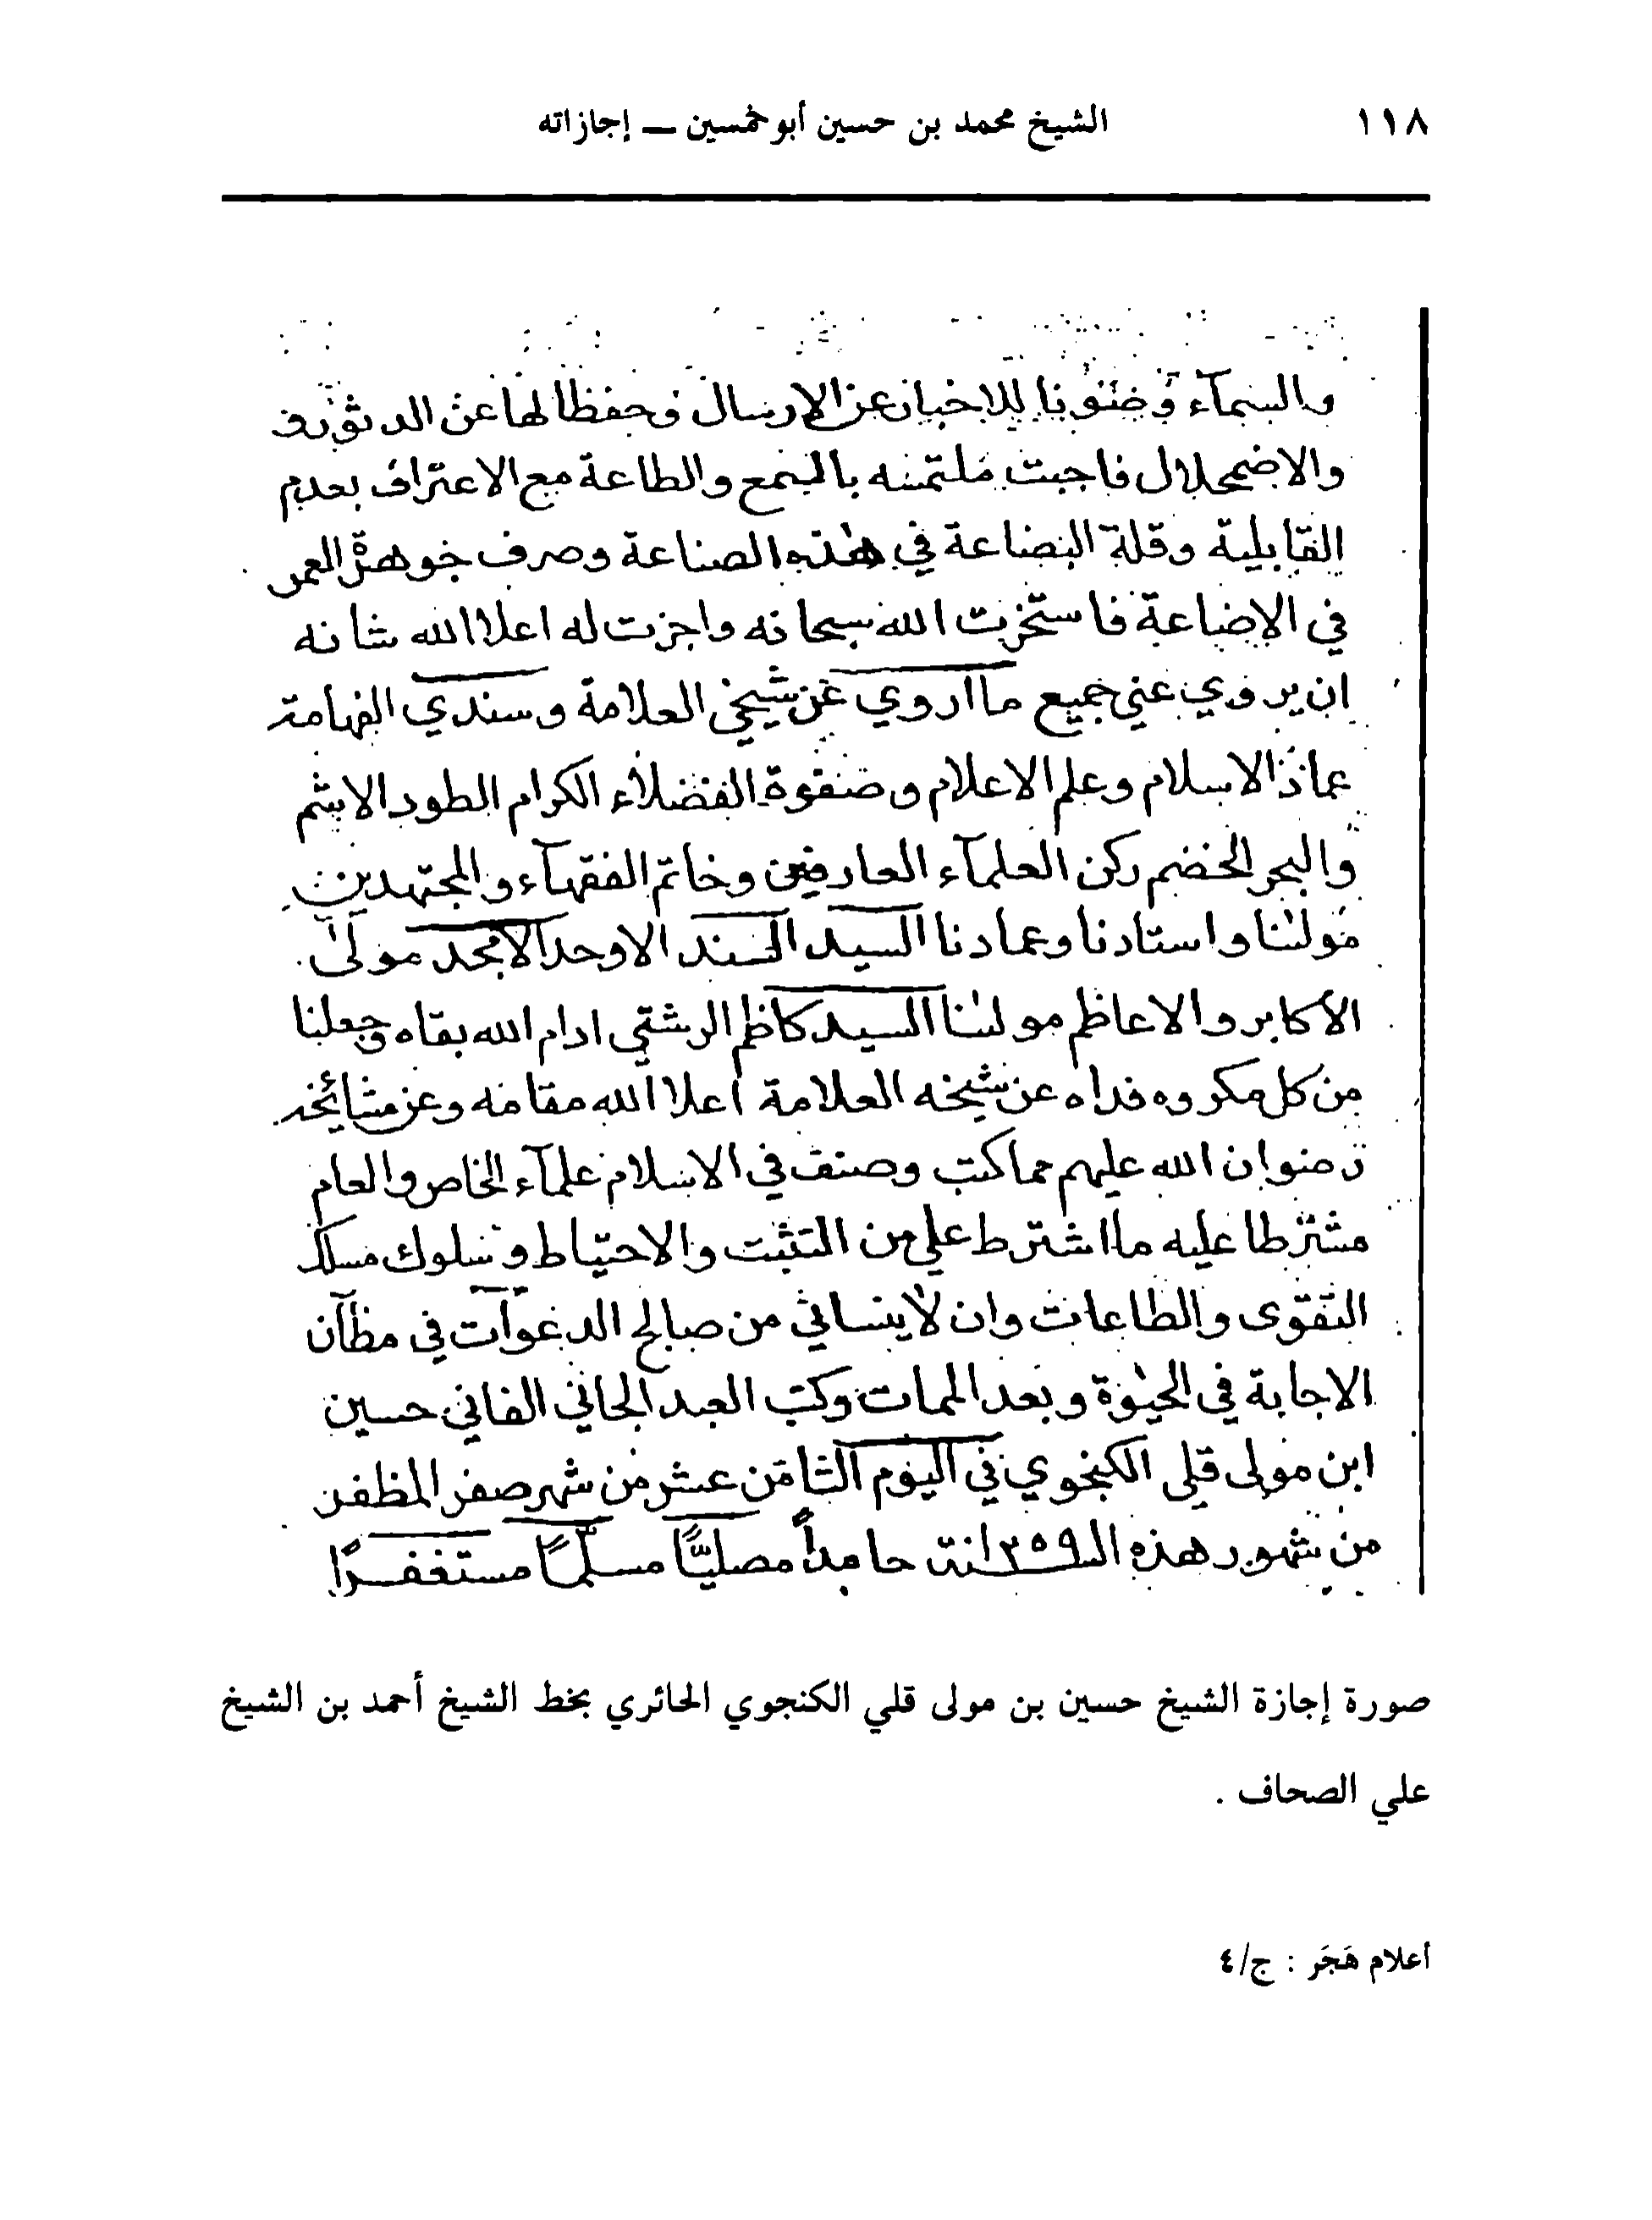 ١١٨ الشيخ محمد بن حسين أبوخمسين ــ إجازاته
والسمآء وصونا للاخبار عن الارسال وحفظا لها عن الدثور
والاضمحلال فاجبت ملتمسه بالسمع والطاعة مع الاعتراف بعدم
القابلية وقلة البضاعة في هذه الصناعة وصرف جوهرة العمر
في الاضاعة فاستخرت الله سبحانه واجزت له اعلا الله شانه
ان يروي عني جميع ما اروي عن شيخي العلامة وسندي الفهامة
عماد الاسلام وعلم الاعلام وصفوة الفضلاء الكرام الطود الاشم
والبحر الخضم ركن العلمآء العارفين وخاتم الفقهآء والمجتهدين
مولٰنا واستادنا وعمادنا السيد السند الاوحد الامجد مولى
الاكابر والاعاظم مولٰنا السيد كاظم الرشتي ادام الله بقاه وجعلنا
من كل مكروه فداه عن شيخه العلامة اعلا الله مقامه وعن مشائخه
رضوان الله عليهم مما كتب وصنف في الاسلام علمآء الخاص والعام
مشترطا عليه ما اشترط علي من التثبت والاحتياط وسلوك مسلك
التقوى والطاعات وان لا ينساني من صالح الدعوات في مظآن
الاجابة في الحيٰوة وبعد الممات وكتب العبد الجاني الفاني حسين
ابن مولى قلي الكنجوي في اليوم الثامن عشر من شهر صفر المظفر
من شهور هذه السنة ١٢٥٩ حامداً مصلياً مسلماً مستغفراً
صورة إجازة الشيخ حسين بن مولى قلي الكنجوي الحائري بخط الشيخ أحمد بن الشيخ
علي الصحاف .
أعلام هَجَر : ج/٤